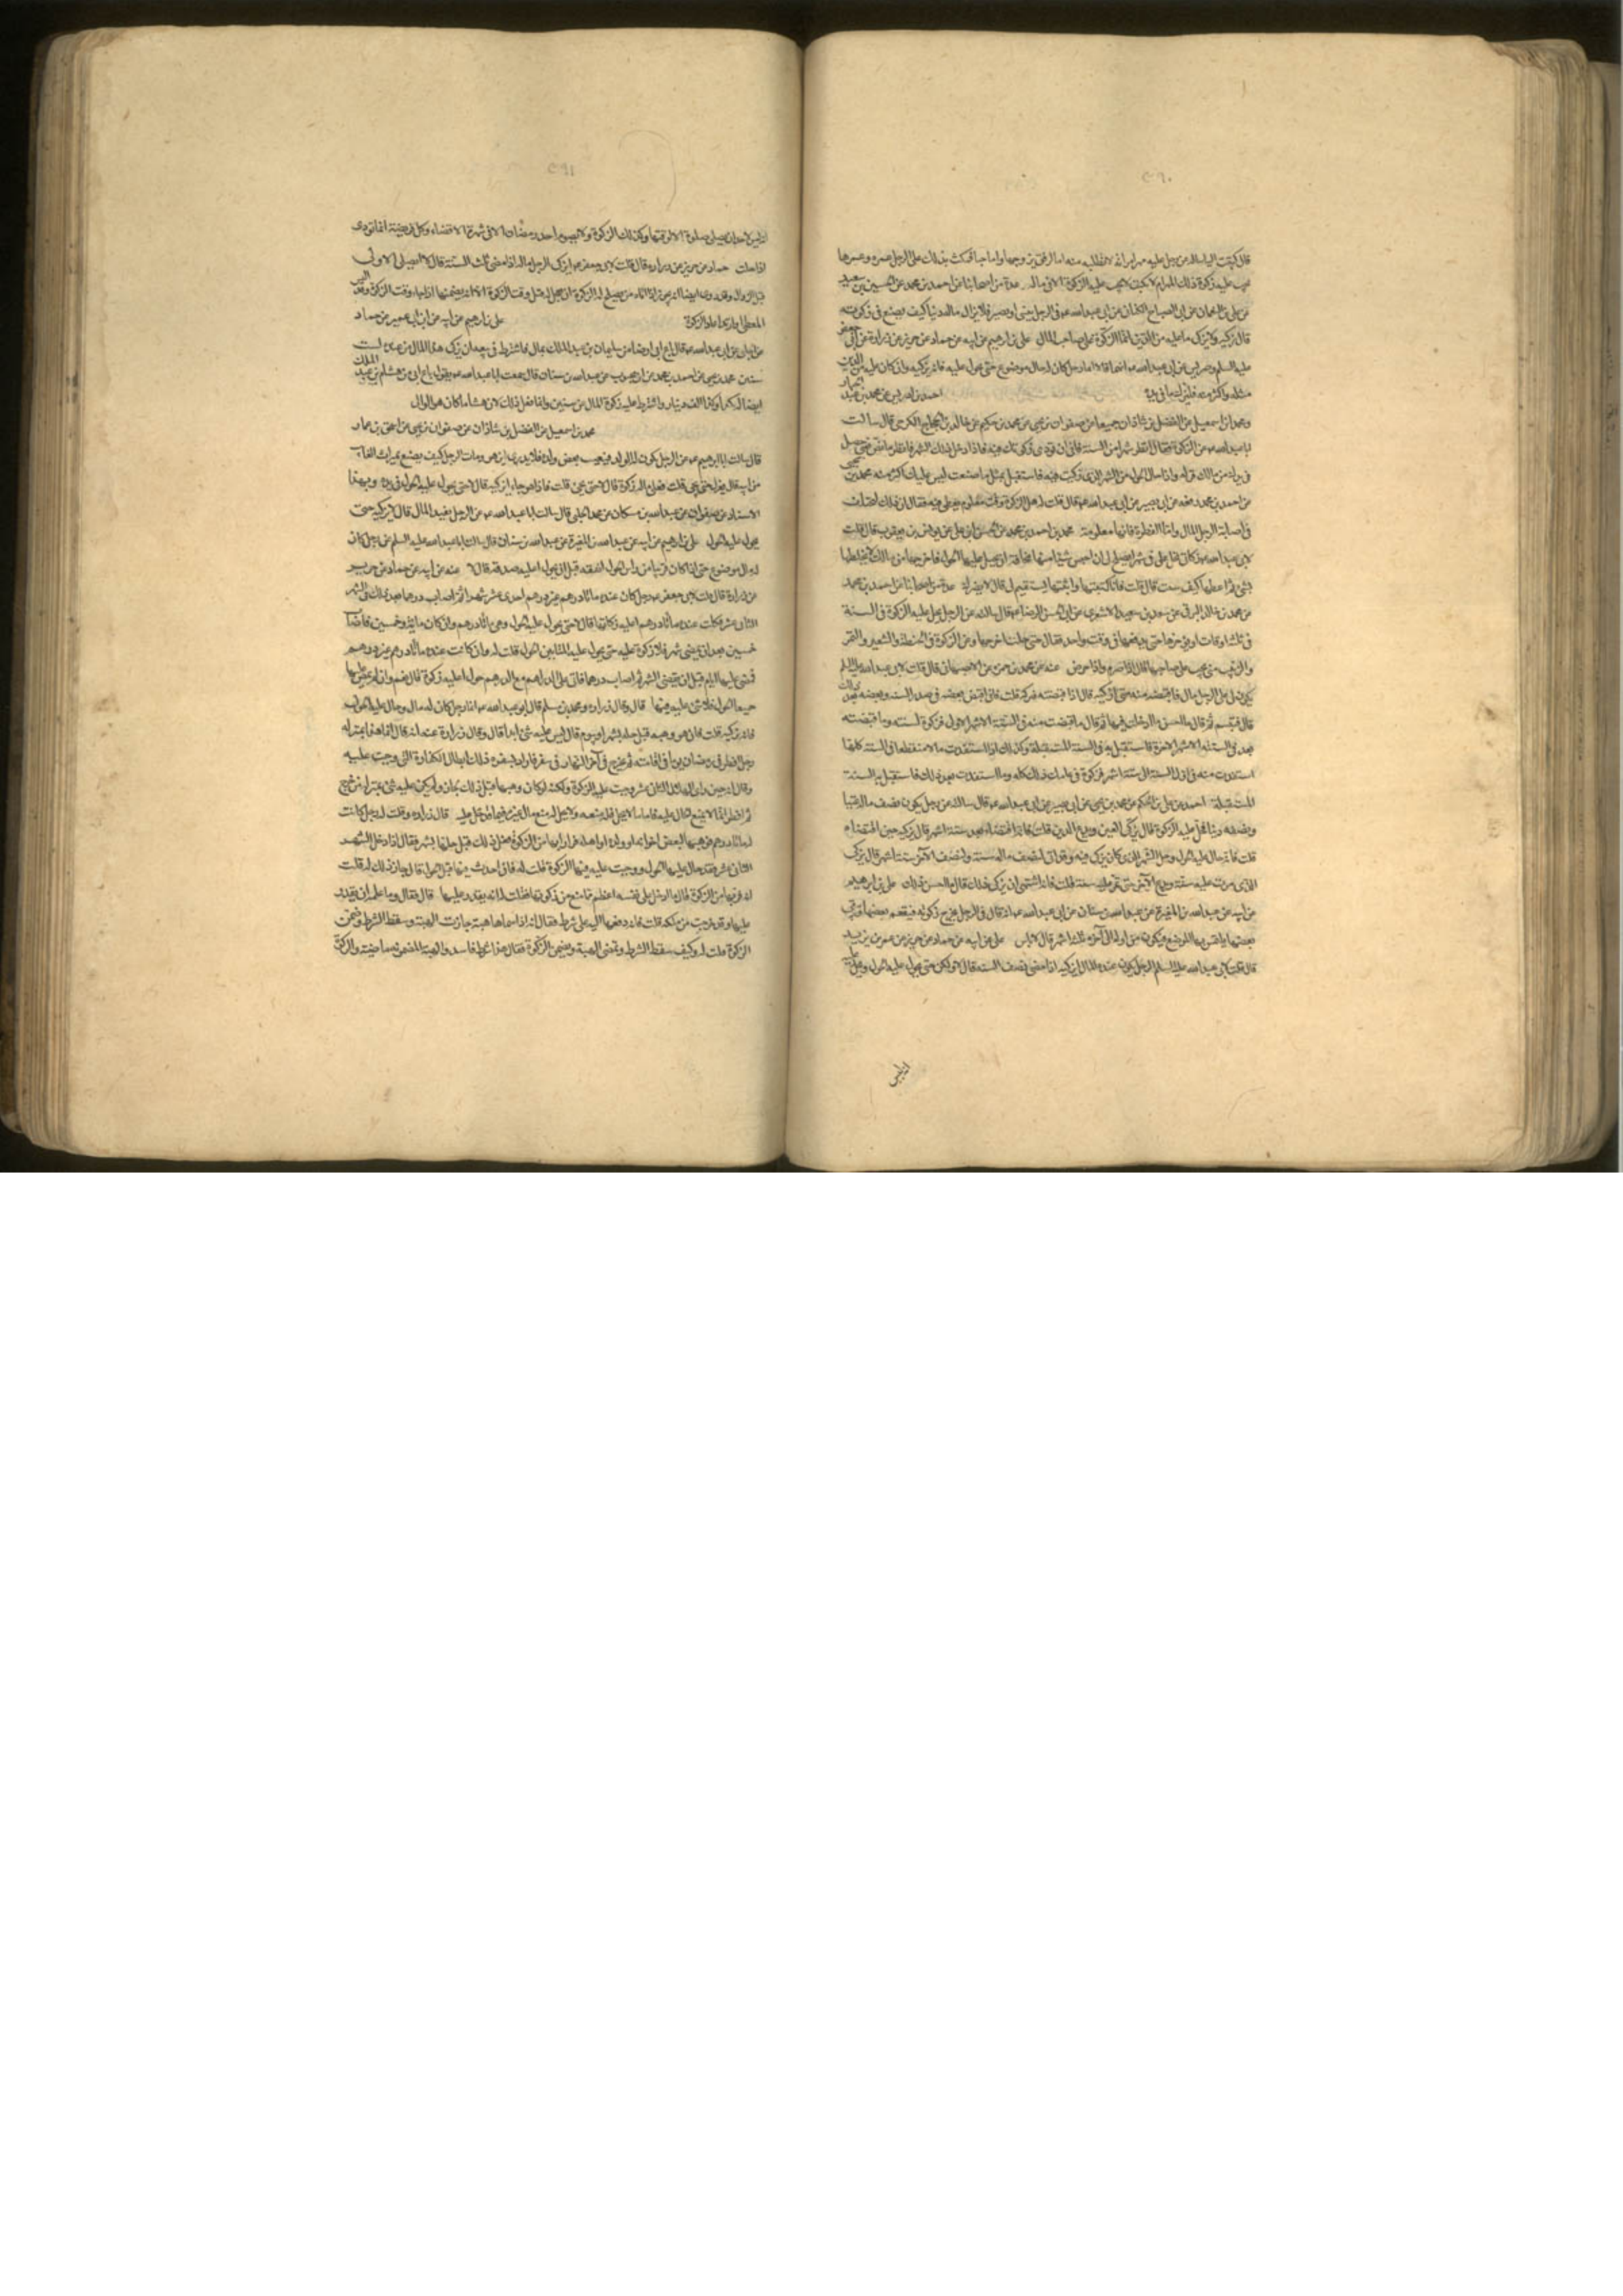 ٢٩٠
قال كتبت اليه اساله عن رجل عليه مهر امراته لا تطلبه منه اما لرفق بزوجها واما حياء فمكث بذلك على الرجل عمره وعمرها
يجب عليه زكوة ذلك المهر ام لا فكتب لا يجب عليه الزكوة الا في ماله عدة من اصحابنا عن احمد بن محمد عن الحسين بن سعيد
عن على بن النعمان عن ابى الصباح الكنانى عن ابى عبدالله ع فى الرجل ينسى او يعير فلا يزال ماله دينا كيف يصنع فى زكوته
قال يزكيه ولا يزكى ما عليه من الدين انما الزكوة على صاحب المال على بن ابرهيم عن ابيه عن حماد عن حريز عن زرارة عن ابى جعفر
عليه السلم وضريس عن ابى عبدالله ع انهما قالا ايما رجل كان له مال موضوع حتى يحول عليه الحول فانه يزكيه وان كان عليه من الدين
مثله واكثر منه فليزك ما فى يده
ومحمد بن اسمعيل عن الفضل بن شاذان جميعا عن صفوان بن يحيى عن محمد بن حكيم عن خالد بن الحجاج الكرخى قال سالت
ابا عبدالله ع عن الزكوة فقال انظر شهرا من السنة فانو ان تؤدى زكوتك فيه فاذا دخل ذلك الشهر فانظر ما نض يعنى حصل
فى يدك من مالك فزكه واذا حال الحول من الشهر الذى زكيت فيه فاستقبل بمثل ما صنعت ليس عليك اكثر منه محمد بن يحيى
عن احمد بن محمد رفعه عن ابى بصير عن ابى عبدالله ع قال قلت له هل للزكوة وقت معلوم تعطى فيه فقال ان ذلك ليختلف
فى اصابة الرجل المال واما الفطرة فانها معلومة محمد بن يحيى عن احمد بن محمد عن الحسن بن على عن يونس بن يعقوب قال قلت
عن محمد بن خالد البرقى عن سعد بن سعيد الاشعرى عن ابى الحسن الرضا ع قال سالته عن الرجل يحل عليه الزكوة فى السنة
فى ثلث اوقات ايؤخرها حتى يدفعها فى وقت واحد فقال متى حلت اخرجها وعن الزكوة فى الحنطة والشعير والتمر
والزبيب متى يجب على صاحبها قال اذا صرم واذا خرص عنه عن محمد بن حمزة عن الاصبهانى قال قلت لابى عبدالله عليه السلم
يكون لى على الرجل مال فاقبضه منه متى ازكيه قال اذا قبضته فزكه قلت فانى اقبض بعضه فى صدر السنة وبعضه بعد ذلك
قال فتبسم ثم قال ما احسن ما ادخلت فيها ثم قال ما قبضت منه فى الستة الاشهر الاولى فزكوة لسنته وما قبضته
بعد فى الستة الاشهر الاخيرة فاستقبل به فى السنة المستقبلة وكذلك اذا استفدت مالا منقطعا فى السنة كلها
استفدت منه فى اول السنة الى ستة اشهر فزكوة فى عامك ذلك كله وما استفدت بعد ذلك فاستقبل به السنة
المستقبلة احمد عن على بن الحكم عن محمد بن يحيى عن ابى بصير عن ابى عبدالله ع قال سالته عن رجل يكون نصف ماله عينا
ونصفه دينا فتحل عليه الزكوة قال يزكى العين ويدع الدين قلت فانه اقتضاه بعد ستة اشهر قال يزكيه حين اقتضاه
عن ابيه عن عبدالله بن المغيرة عن عبدالله بن سنان عن ابى عبدالله ع انه قال فى الرجل يخرج زكوته فيقسم بعضها ويبقى
بعضها يلتمس بها الموضع فيكون من اوله الى آخره ثلثة اشهر قال لا باس على عن ابيه عن حماد عن حريز عن عمر بن يزيد
قال قلت لابى عبدالله عليه السلم الرجل يكون عنده المال ايزكيه اذا مضى نصف السنة قال لا ولكن حتى يحول عليه الحول ويحل عليه
انه ليس
٢٩١
انه ليس لاحد ان يصلى صلوة الا لوقتها وكذلك الزكوة ولا يصوم احد رمضان الا فى شهره الا قضاء وكل فريضة انما تؤدى
اذا حلت حماد عن حريز عن زرارة قال قلت لابى جعفر ع ايزكى الرجل ماله اذا مضى ثلث السنة قال لا ايصلى الاولى
قبل الزوال وقد روى ايضا انه يجوز اذا اتاه من يصلح له الزكوة ان يعجل له قبل وقت الزكوة الا انه يضمنها اذا جاء وقت الزكوة وقد ايسر
المعطى او ارتد اعاد الزكوة على بن ابرهيم عن ابيه عن ابن ابى عمير عن حماد
سنين محمد بن يحيى عن احمد بن محمد عن ابن محبوب عن عبدالله بن سنان قال سمعت ابا عبدالله ع يقول باع ابى من هشام بن عبد الملك
ارضا له بكذا وكذا الف دينار واشترط عليه زكوة ذلك المال عشر سنين وانما فعل ذلك لان هشاما كان هو الوالى
محمد بن اسمعيل عن الفضل بن شاذان عن صفوان بن يحيى عن اسحق بن عمار
قال سالت ابا ابرهيم ع عن الرجل يكون له الولد فيغيب بعض ولده فلا يدرى اين هو ومات الرجل كيف يصنع بميراث الغائب
من ابيه قال يعزل حتى يجئ قلت فعلى ماله زكوة قال لا حتى يجئ قلت فاذا هو جاء ايزكيه قال لا حتى يحول عليه الحول فى يده وبهذا
الاسناد عن صفوان عن عبدالله بن مسكان عن محمد الحلبى قال سالت ابا عبدالله ع عن الرجل يفيد المال قال لا يزكيه حتى
يحول عليه الحول على بن ابرهيم عن ابيه عن عبدالله بن المغيرة عن عبدالله بن سنان قال سالت ابا عبدالله عليه السلم عن رجل كان
له مال موضوع حتى اذا كان قريبا من راس الحول انفقه قبل ان يحول عليه اعليه صدقة قال لا عنه عن ابيه عن حماد عن حريز
عن زرارة قال قلت لابى جعفر ع رجل كان عنده مائتا درهم غير درهم احدى عشر شهرا ثم اصاب درهما بعد ذلك فى الشهر
الثانى عشر فكملت عنده مائتا درهم اعليه زكوتها قال لا حتى يحول عليه الحول وهى مائتا درهم فان كان مائة وخمسين فاصاب
خمسين بعد ان يمضى شهر فلا زكوة عليه حتى يحول على المائتين الحول قلت له فان كانت عنده مائتا درهم غير درهم
فمضى عليها ايام قبل ان ينقضى الشهر ثم اصاب درهما فاتى على الدراهم مع الدرهم حول اعليه زكوة قال نعم وان لم يمض عليها
جميعا الحول فلا شئ عليه فيها قال وقال زرارة ومحمد بن مسلم قال ابو عبدالله ع ايما رجل كان له مال وحال عليه الحول
فانه يزكيه قلت له فان هو وهبه قبل حله بشهر او بيوم قال ليس عليه شئ ابدا قال وقال زرارة عنه انه قال انما هذا بمنزلة
رجل افطر فى رمضان يوما فى اقامته ثم يخرج فى آخر النهار فى سفر فاراد بسفره ذلك ابطال الكفارة التى وجبت عليه
وقال انه حين راى الهلال الثانى عشر وجبت عليه الزكوة ولكنه لو كان وهبها قبل ذلك لجاز ولم يكن عليه شئ بمنزلة من خرج
ثم افطر انما لا يمنع الحال عليه فاما ما لم يحل فله منعه ولا يحل له منع مال غيره فيما قد حل عليه قال زرارة وقلت له رجل كانت
له مائتا درهم فوهبها لبعض اخوانه او ولده او اهله فرارا بها من الزكوة فعل ذلك قبل حلها بشهر فقال اذا دخل الشهر
الثانى عشر فقد حال عليها الحول ووجبت عليه فيها الزكوة قلت له فان احدث فيها قبل الحول قال جايز ذلك له قلت
انه فر بها من الزكوة قال ما ادخل على نفسه اعظم مما منع من زكوتها فقلت له انه يقدر عليها قال فقال وما علمه انه يقدر
عليها وقد خرجت من ملكه قلت فانه دفعها اليه على شرط فقال انه اذا سماها هبة جازت الهبة وسقط الشرط وضمن
الزكوة قلت له وكيف يسقط الشرط وتمضى الهبة ويضمن الزكوة فقال هذا شرط فاسد والهبة المضمونة ماضية والزكوة